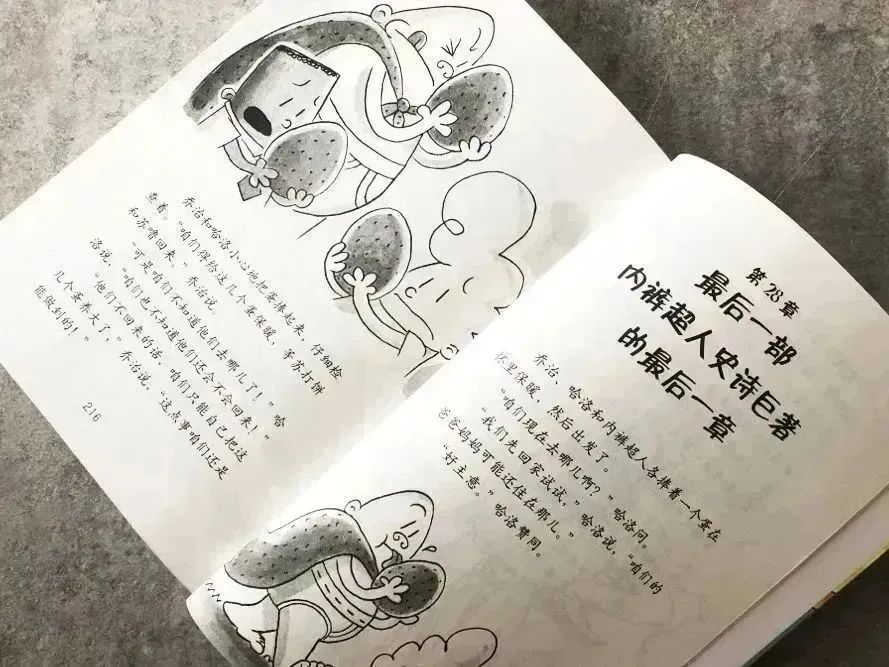 乔治和哈洛小心地把蛋捧起来，仔细检
查着。“咱们得给这几个蛋保暖，等苏打饼
和苏噜回来。”乔治说。
“可是咱们不知道他们去哪儿了！”哈
洛说，“咱们也不知道他们还会不会回来！”
“他们不回来的话，咱们只能自己把这
几个蛋养大了，”乔治说，“这点事咱们还是
能做到的！”
216
第 28 章
最后一部
内裤超人史诗巨著
的最后一章
乔治、哈洛和内裤超人各捧着一个蛋在
怀里保暖，然后出发了。
“咱们现在去哪儿啊？”哈洛问。
“我们先回家试试，”哈洛说，“咱们的
爸爸妈妈可能还住在那儿。”
“好主意。”哈洛赞同。